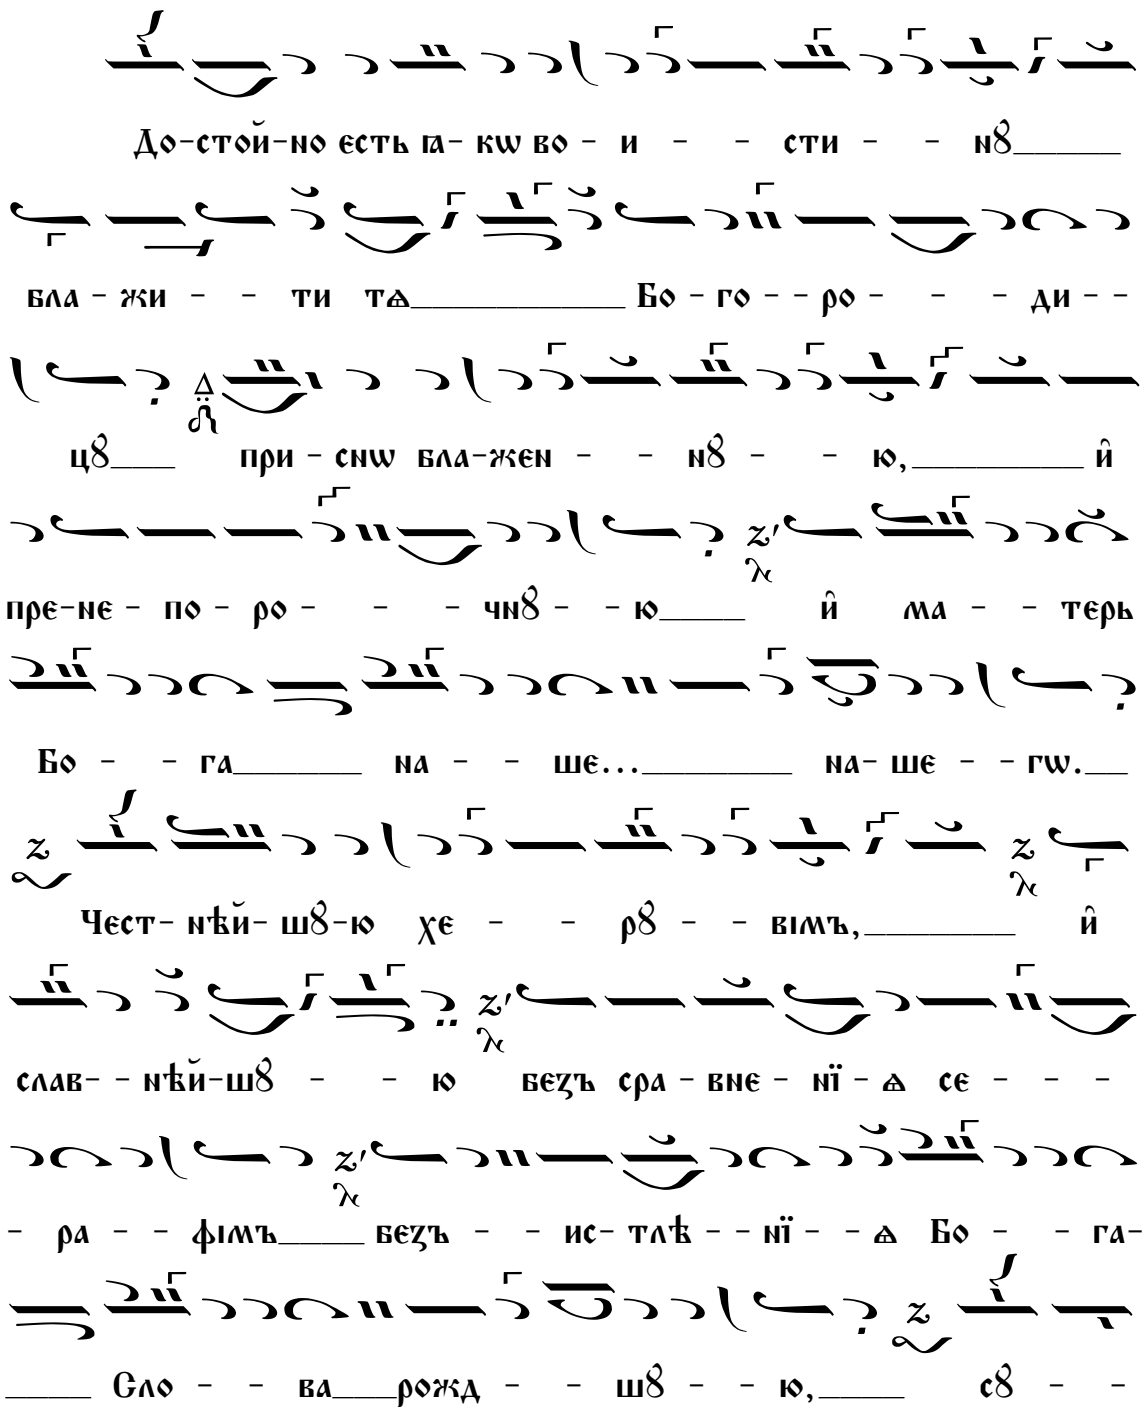 До-стой-но єсть ꙗ- кѡ во - и - - сти - - нꙋ______
бла - жи - - ти тѧ____________ Бо - го - - ро - - - ди - -
цꙋ____ при - снѡ бла-жєн - - нꙋ - - ю,_________ и҆̑
прє-нє - по - ро - - - чнꙋ - - ю_____ и҆̑ ма - - тєрь
Бо - - га_______ на - - шє..._________ на- шє - - гѡ.__
Чєст- нѣй- шꙋ-ю хє - - рꙋ - - вімъ,_________ и҆̑
слав- - нѣй-шꙋ - - ю бєзъ сра - внє - нї - ѧ сє - - -
- ра - - фімъ_____ бєзъ - - ис- тлѣ - - нї - - ѧ Бо - - га-
_____ Сло - - ва____рожд - - шꙋ - - ю,_____ сꙋ - -